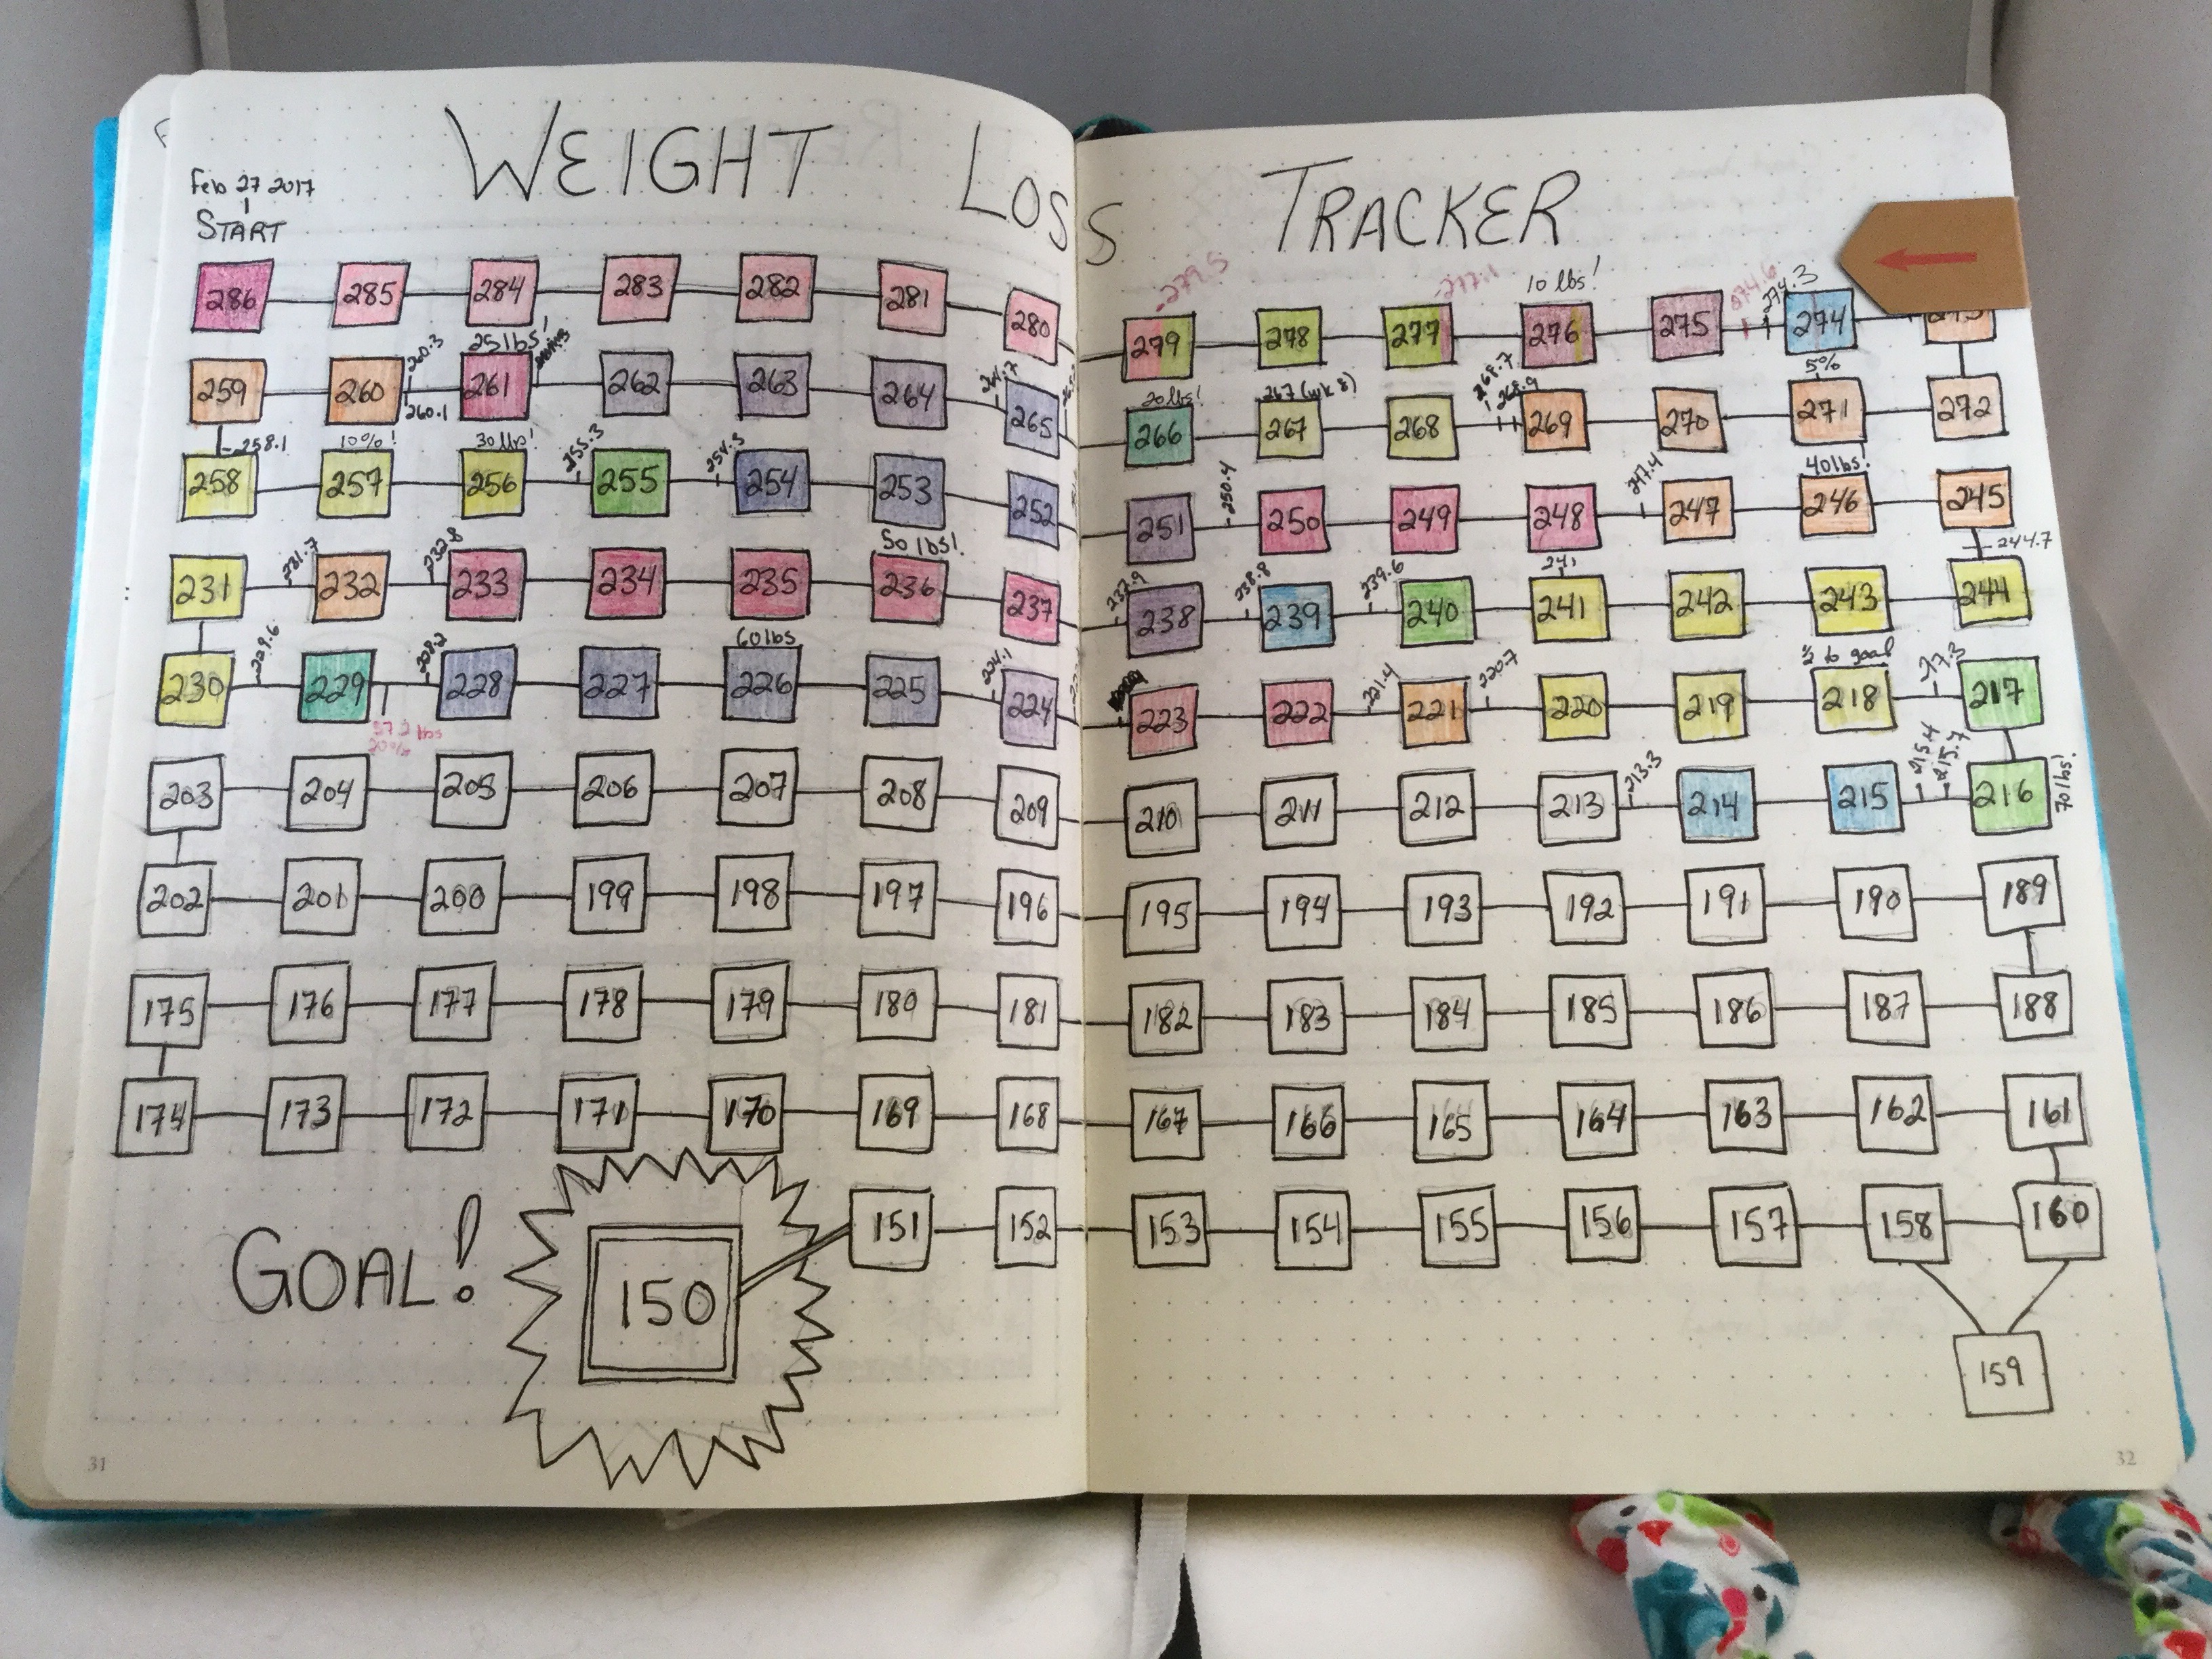 WEIGHT LOSS TRACKER
Feb 27 2017
START
279.5 277.1 10 lbs! 274.6 274.3
286 285 284 283 282 281 280 279 278 277 276 275 274
25 lbs! 260.3 264.7 20 lbs! 267 (wk 8) 268.7 268.9 5%
259 260 261 262 263 264 265 266 267 268 269 270 271 272
260.1
258.1 10%! 30 lbs! 255.3 254.3 250.4 247.4 40 lbs!
258 257 256 255 254 253 252 251 250 249 248 247 246 245
244.7
231.7 232.8 50 lbs! 237.9 238.8 239.6 241
231 232 233 234 235 236 237 238 239 240 241 242 243 244
229.6 228.2 60 lbs 224.1 221.4 220.7 1/2 to goal 217.3
230 229 228 227 226 225 224 223 222 221 220 219 218 217
57.2 lbs
20%
213.3 215.4 215.7 70 lbs!
203 204 205 206 207 208 209 210 211 212 213 214 215 216
202 201 200 199 198 197 196 195 194 193 192 191 190 189
175 176 177 178 179 180 181 182 183 184 185 186 187 188
174 173 172 171 170 169 168 167 166 165 164 163 162 161
GOAL! 150 151 152 153 154 155 156 157 158 160
159
31 32